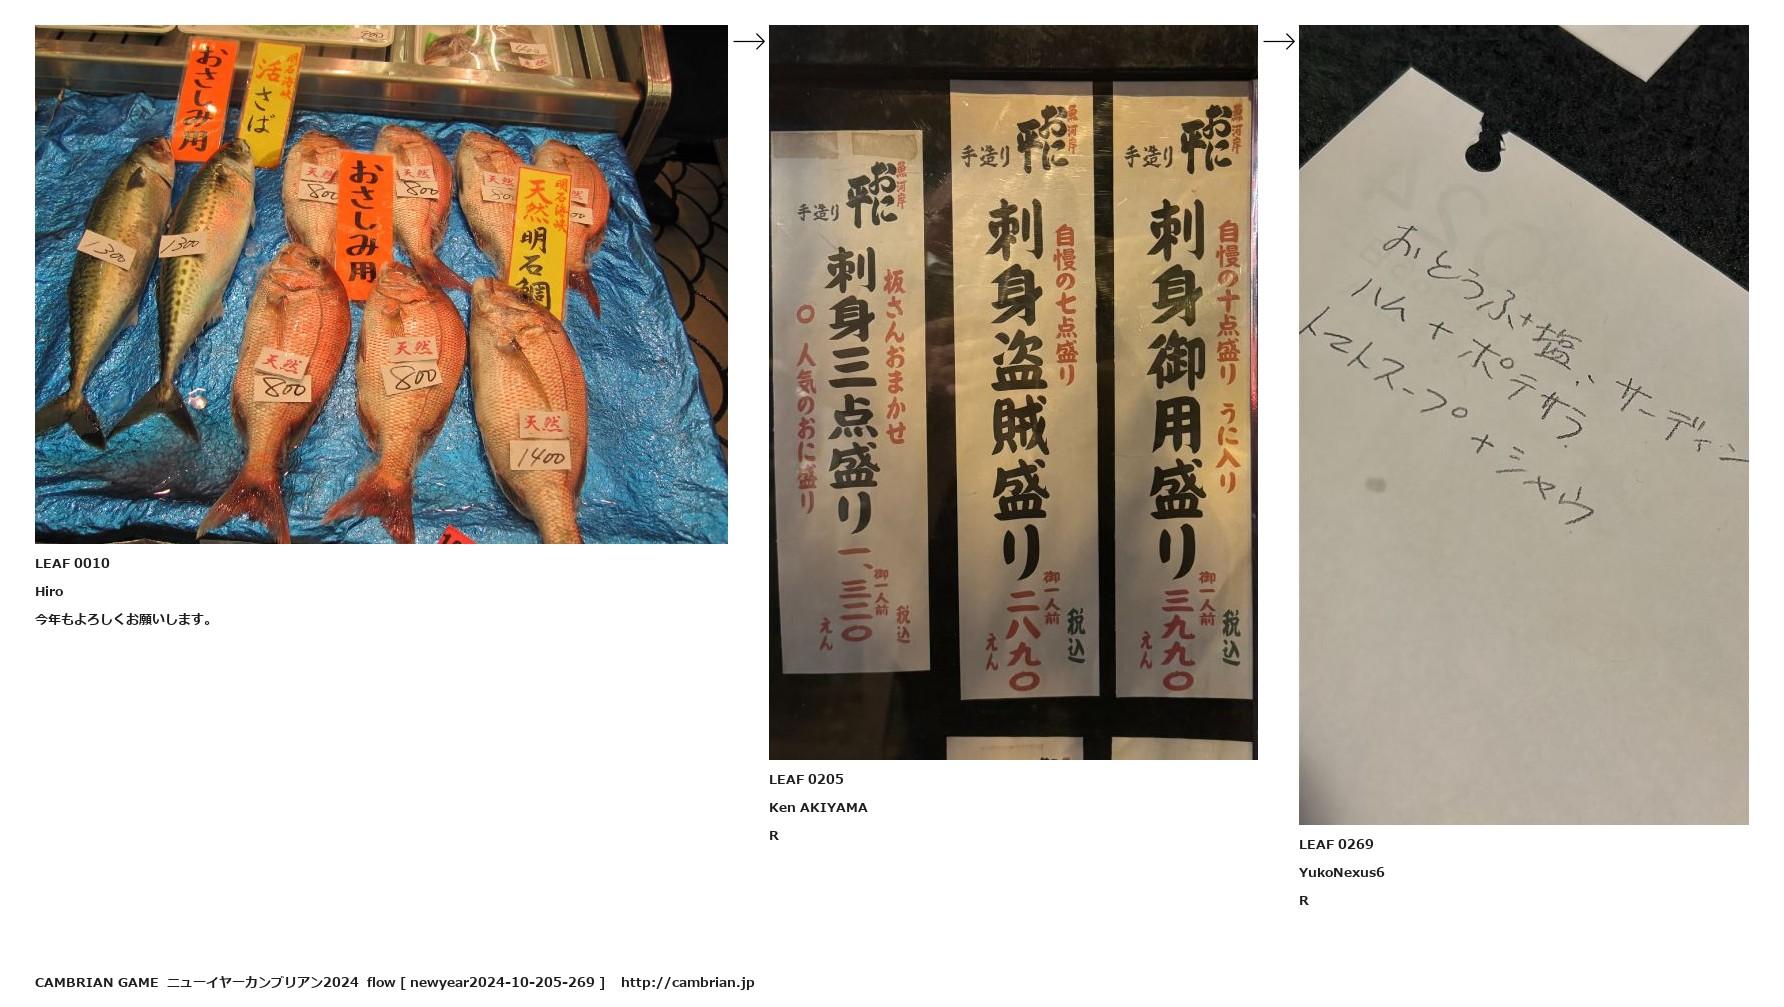 おさしみ用
明石海峡
活さば
おさしみ用
明石海峡
天然明石鯛
1300
1300
天然
800
天然
800
天然
天然
800
天然
800
天然
1400
魚河岸
おに平
手造り
板さんおまかせ
刺身三点盛り
〇 人気のおに盛り
一、三二〇
御一人前
税込
えん
魚河岸
おに平
手造り
自慢の七点盛り
刺身盗賊盛り
二八九〇
御一人前
税込
えん
魚河岸
おに平
手造り
自慢の十点盛り うに入り
刺身御用盛り
三九九〇
御一人前
税込
えん
おとうふ+塩、サーディン
ハム+ポテサラ
トマトスープ+シャウ
LEAF 0010
Hiro
今年もよろしくお願いします。
LEAF 0205
Ken AKIYAMA
R
LEAF 0269
YukoNexus6
R
CAMBRIAN GAME ニューイヤーカンブリアン2024 flow [ newyear2024-10-205-269 ] http://cambrian.jp